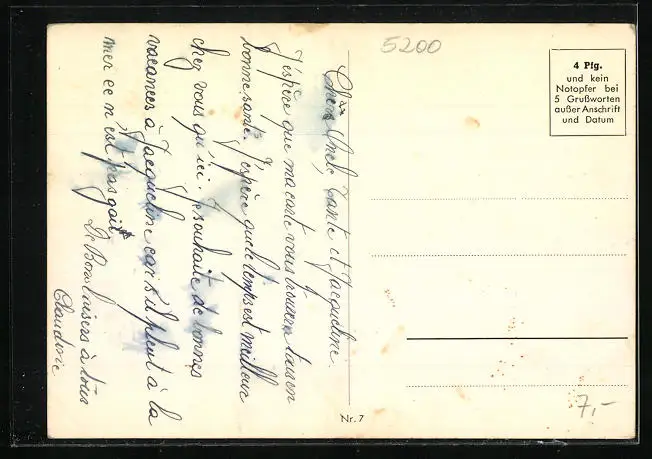 5200
4 Pfg.
und kein
Notopfer bei
5 Grußworten
außer Anschrift
und Datum
Chers Oncle, Tante et Jacqueline.
J'espère que ma carte vous trouvera tous en
bonne santé. J'espère que le temps est meilleur
chez vous qu'ici. Je souhaite de bonnes
vacances à Jacqueline car s'il pleut à la
mer ce n'est pas gai
De Bons baisers à tous
Claudine
Nr. 7
7,-